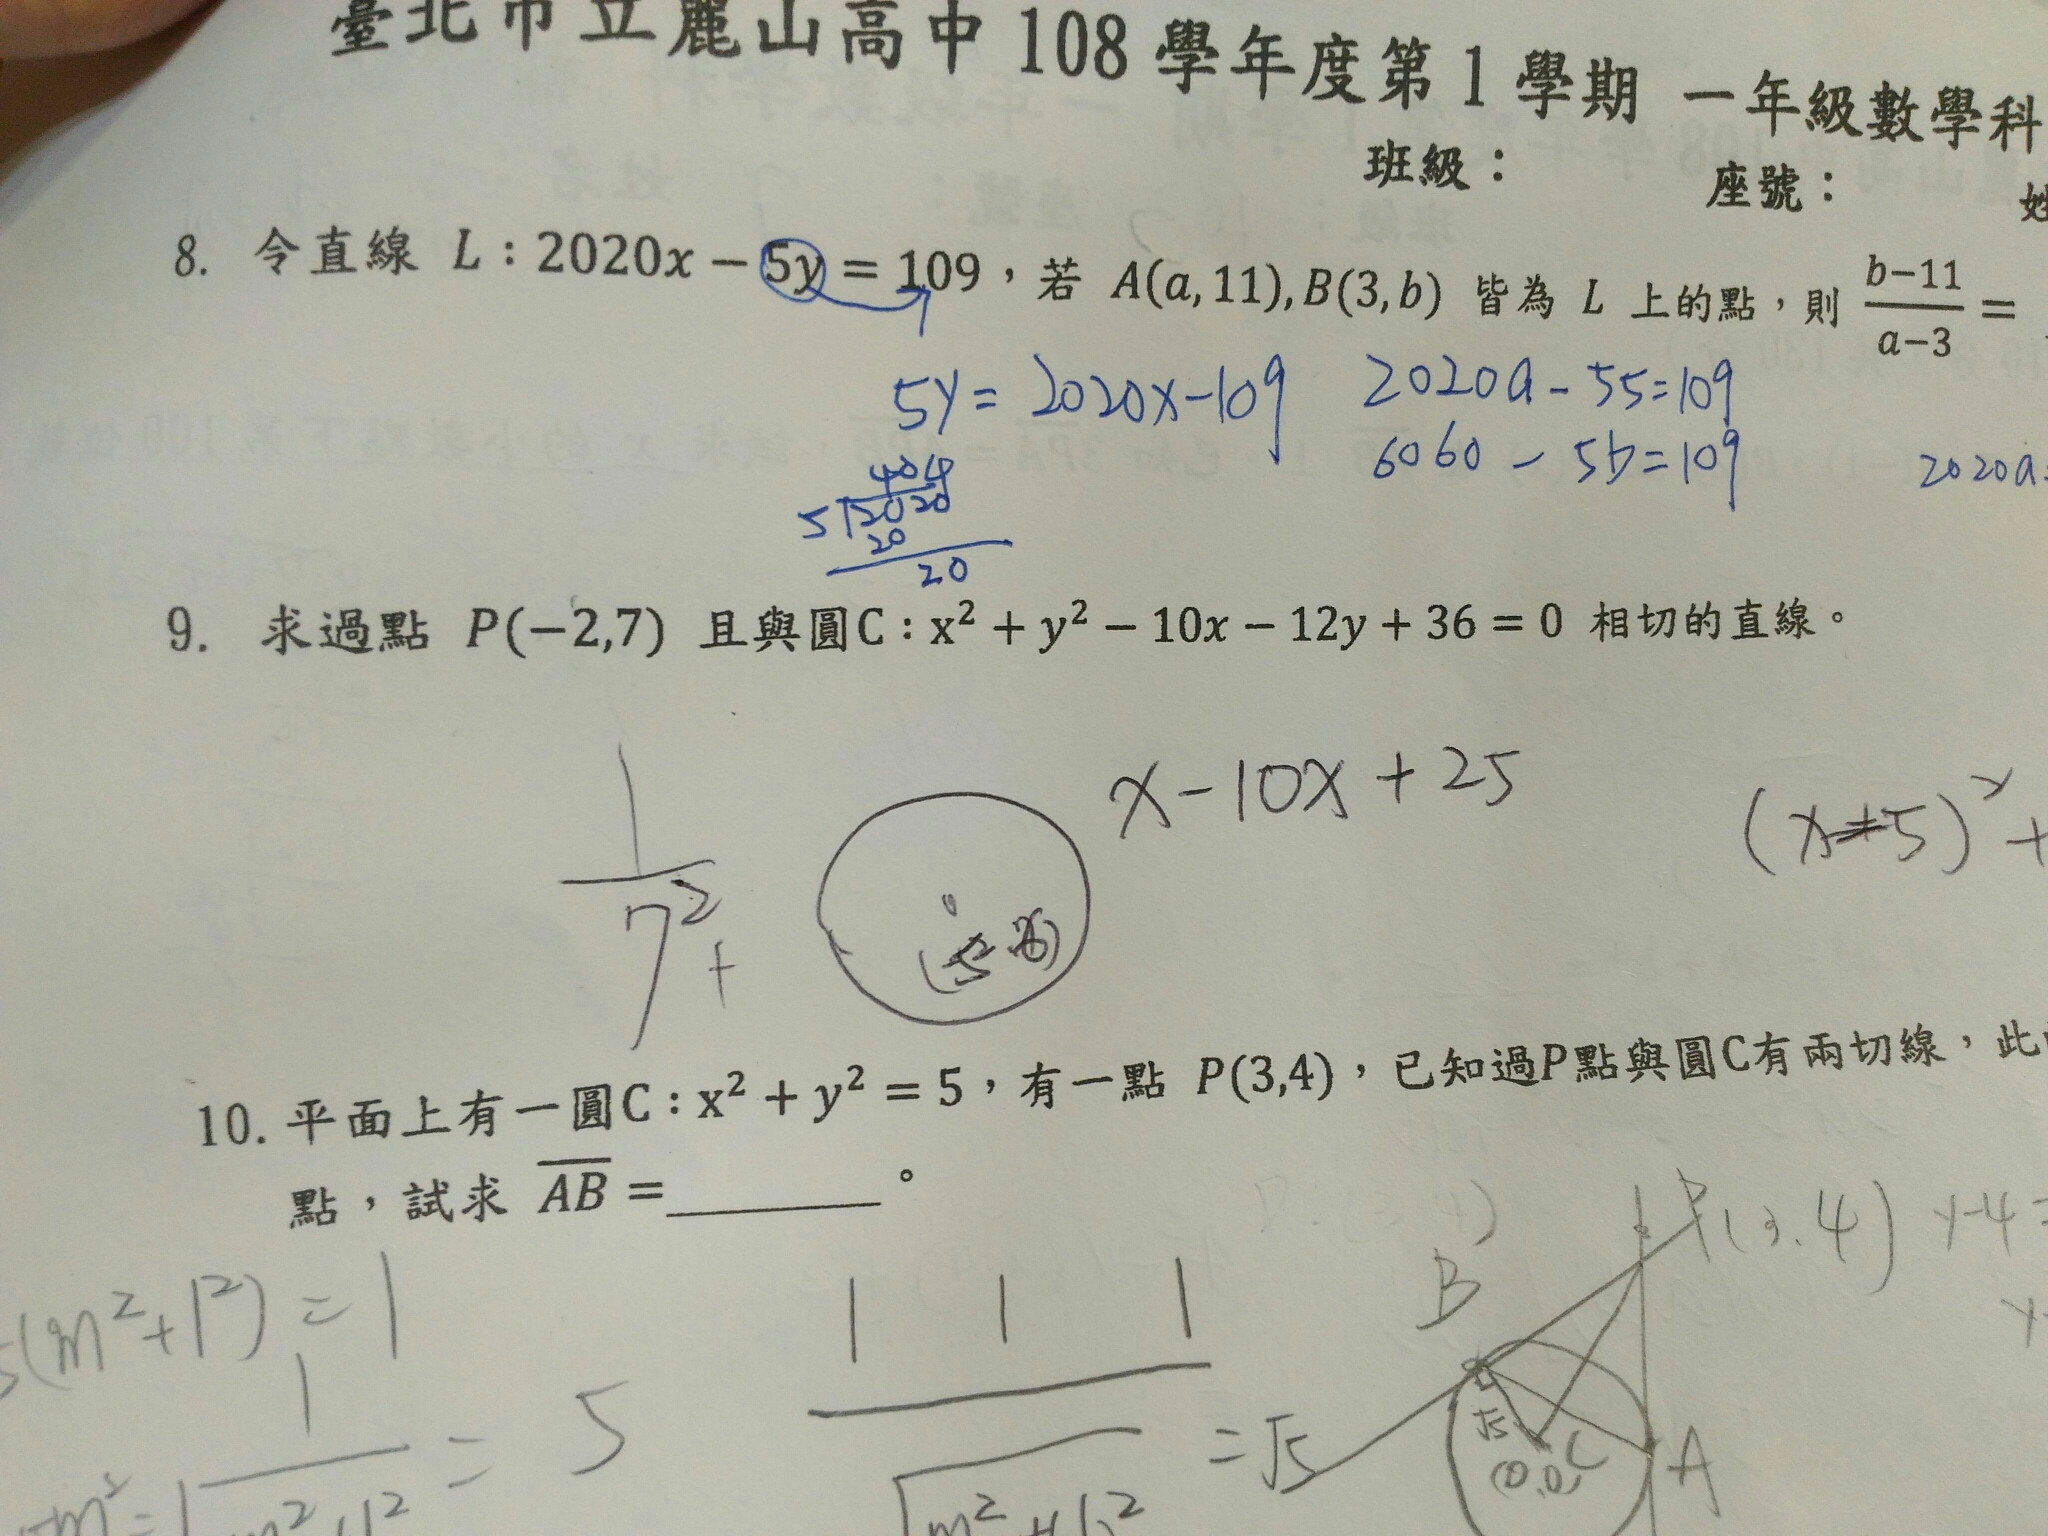 臺北市立麗山高中 108 學年度第 1 學期 一年級數學科
班級： 座號： 姓
8. 令直線 L：2020x − 5y = 109，若 A(a, 11), B(3, b) 皆為 L 上的點，則 \frac{b−11}{a−3} =
5y = 2020x−109 2020a − 55=109
6060 − 5b=109 2020a
404
5 2020
20
20
9. 求過點 P(−2,7) 且與圓C：x² + y² − 10x − 12y + 36 = 0 相切的直線。
x − 10x + 25
1
7² +
10. 平面上有一圓C：x² + y² = 5，有一點 P(3,4)，已知過P點與圓C有兩切線，此
點，試求 \overline{AB} =________。
P(3.4) y−4=
B
5(m²+1²) = 1
1 = 5
1 1 1
= √5
√5 C A
(0,0)